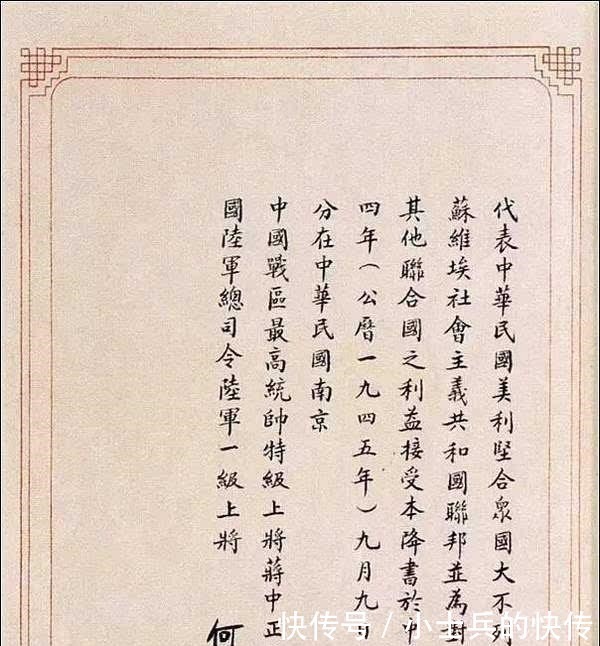 代表中華民國美利堅合眾國大不列
蘇維埃社會主義共和國聯邦並為對
其他聯合國之利益接受本降書於中
四年(公曆一九四五年)九月九日
分在中華民國南京
中國戰區最高統帥特級上將蔣中正
國陸軍總司令陸軍一級上將
何
快传号/小士兵的快传